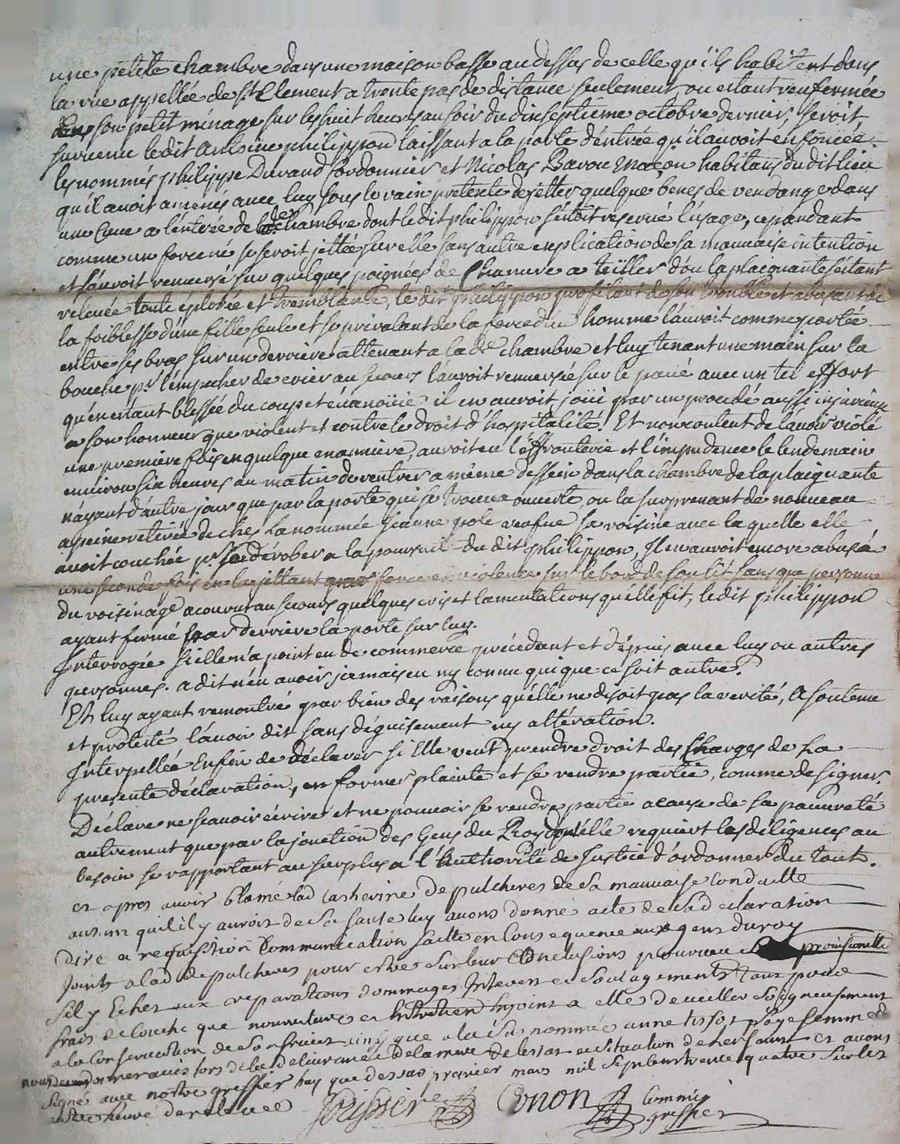 une petite chambre dans une maison basse au dessus de celle qu'ils habitent dans
la rue appellée de St Clement a trente pas de distance seulement, ou estant renfermée
dans son petit ménage sur les huit heures au soir du dixseptieme octobre dernier, seroit
survenu le dit Antoine philippon laissant a la porte d'entrée qu'il auoit enfoncée
les nommés philippe Durand Cordonnier et Nicolas Barou Maçon habitans du dit lieu
qu'il auoit amenés auec luy sous le vain pretexte de jetter quelque benes de vendange dans
une Cuue a l'entrée de lade chambre dont le dit philippon s'étoit reservé l'usage, cependant
comme un forcené se seroit jetté sur elle sans autre explication de sa mauuaise intention
et l'auroit renuersé sur quelques poignées de Chanure a teiller d'ou la plaignante s'étant
releuée toute eplorée et tremblante, le dit philippon profitant de son trouble et abusant de
la foiblesse d'une fille seule et se préualant de la force d'un homme l'auroit comme portée
entre ses bras sur un derriere attenant a la de chambre et luy tenant une main sur la
bouche pr l'empecher de crier au secours l'auroit renuersée sur le paué auec un tel effort
qu'en estant blessée du coup et éuanoüie il en auroit joüi par un procedé aussi injurieux
a son honneur que violent et contre le droit d'hospitalité. Et non content de l'auoir violé
une premiere fois en quelque maniere, auroit eu l'effronterie et l'impudence le lendemain
enuiron six heures au matin de rentrer a même dessein dans la chambre de la plaignante
n'ayant d'autre jour que par la porte qui se trouua ouuerte, ou la surprenant de nouueau
a peine retirée de chés la nommée Jeanne veufue sa voisine avec la quelle elle
auoit couchée pr se dérober a la poursuite du dit philippon, Il en auroit encore abusée
une seconde fois en la jettant force et violence sur le bord de son lit sans que personne
du voisinage acourut au secours quelques cris et lamentations qu'elle fit, le dit philippon
ayant fermé par derriere la porte sur luy.
Interrogée si elle n'a point eu de commerce précédent et dépuis auec luy ou autres
personnes. a dit n'en auoir jamais eu ny connu qui que ce soit autre.
Et luy ayant remontré par bien des raisons qu'elle ne disoit pas la verité, a soutenu
et protesté l'auoir dit sans déguisement ny altération.
Interpellée Enfin de déclarer si Elle veut prendre droit des Charges de La
presente déclaration, en former plainte et se rendre partie, comme de signer.
Déclare ne sçauoir écrire et ne pouuoir se rendre partie a cause de sa pauureté
autrement que par la jonction des Gens du Roy qu'elle requiert les diligences au
besoin se rapportant au surplus a l'Authorité de Justice d'ordonner du tout.
Et apres auoir blamé lad Catherine Depulcheres de sa mauuaise Conduitte
autant qu'il y auroit de sa faute luy auons donné acte de sad declaration
Dire et requisition Communication faitte en Consequence aux gens du roy
Joints a lad depulcheres pour estre sur leur Conclusions pourueu prouisionelle
s'il y Echet aux reparations dommages Interets et soulagements tant pour
frais de Couche que nourriture et Entretien Enjoint a elle de veiller soigneusement
a la Conseruation de son fruit ainsy que a la nommée anne tissot sage femme
nous lors de la déliurance de la mere de l'estat et situation de l'enfant et auons
signé auec notre greffier premier mars mil sept cent trente quatre sur les
heure de releuée
Conon Commis
greffier